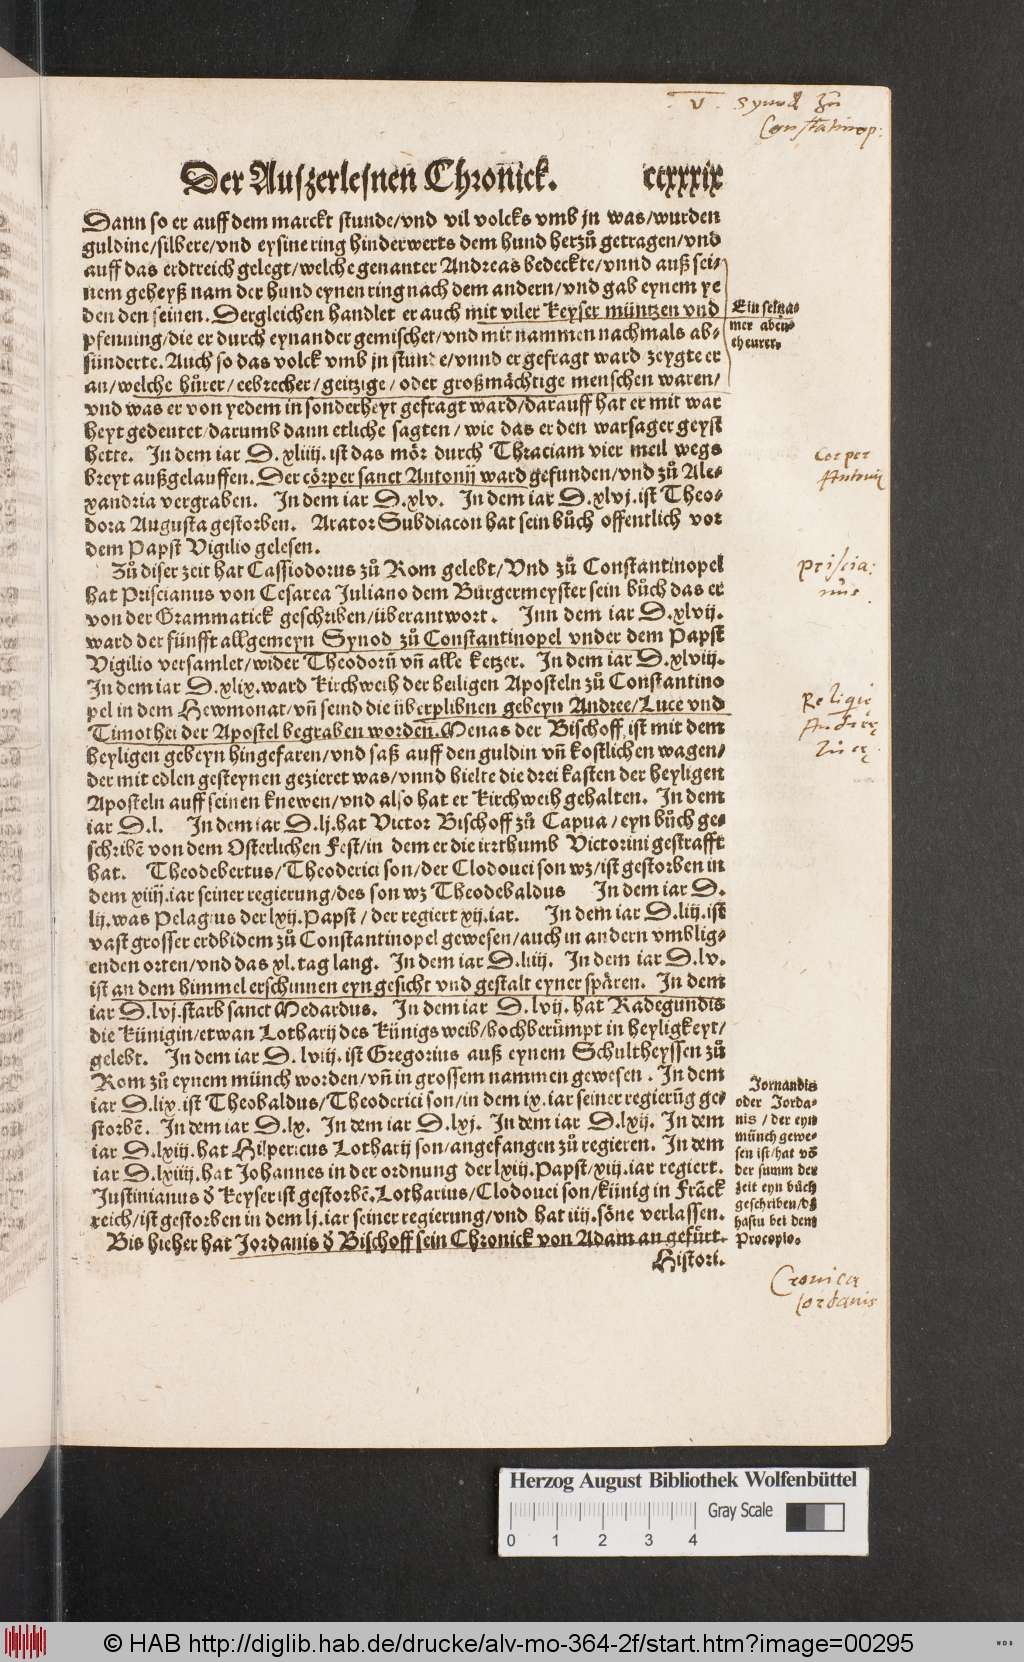 V. Synod Zu
Constantinop:
Der Auszerlesnen Chronick. ccxxxix
Dann so er auff dem marckt stunde/vnd vil volcks vmb jn was/wurden
guldine/silbere/vnd eysine ring hinderwerts dem hund herzů getragen/vnd
auff das erdtreich gelegt/welche genanter Andreas bedeckte/vnnd auß sei⸗
nem geheyß nam der hund eynen ring nach dem andern/vnd gab eynem ye
den den seinen. Dergleichen handlet er auch mit viler Keyser müntzen vnd
pfenning/die er durch eynander gemischet/vnd mit nammen nachmals ab⸗
sünderte. Auch so das volck vmb jn stunde/vnnd er gefragt ward zeygte er
an/welche hůrer/eebrecher/geitzige/oder großmächtige menschen waren/
vnd was er von yedem in sonderheyt gefragt ward/darauff hat er mit war
heyt gedeutet/darumb dann etliche sagten/wie das er den warsager geyst
hette. In dem iar D.xliiij.ist das mör durch Thraciam vier meil wegs
breyt außgelauffen. Der cörper sanct Antonij ward gefunden/vnd zů Ale⸗
xandria vergraben. In dem iar D.xlv. In dem iar D.xlvj.ist Theo⸗
dora Augusta gestorben. Arator Subdiacon hat sein bůch offentlich vor
dem Papst Vigilio gelesen.
Ein seltza⸗
mer aben⸗
theurer.
Corper
Antonij
Zů diser zeit hat Cassiodorus zů Rom gelebt/Vnd zů Constantinopel
hat Priscianus von Cesarea Juliano dem Burgermeyster sein bůch das er
von der Grammatick geschriben/überantwort. Inn dem iar D.xlvij.
ward der fünfft allgemeyn Synod zů Constantinopel vnder dem Papst
Vigilio versamlet/wider Theodorū vñ alle ketzer. In dem iar D.xlviij.
In dem iar D.xlix.ward Kirchweih der heiligen Aposteln zů Constantino
pel in dem Hewmonat/vñ seind die überplibnen gebeyn Andree/Luce vnd
Timothei der Apostel begraben worden. Menas der Bischoff ist mit dem
heyligen gebeyn hingefaren/vnd saß auff den guldin vñ kostlichen wagen/
der mit edlen gesteynen gezieret was/vnnd hielte die drei kasten der heyligen
Aposteln auff seinen knewen/vnd also hat er Kirchweih gehalten. In dem
iar D.l. In dem iar D.lj.hat Victor Bischoff zů Capua/eyn bůch ge⸗
schribē von dem Osterlichen Fest/in dem er die irrthumb Victorini gestrafft
hat. Theodebertus/Theoderici son/der Clodouei son wz/ist gestorben in
dem xiiij.iar seiner regierung/des son wz Theodebaldus In dem iar D.
lij.was Pelagius der lxij.Papst/der regiert xij.iar. In dem iar D.liij.ist
vast grosser erdbidem zů Constantinopel gewesen/auch in andern vmblig⸗
enden orten/vnd das xl.tag lang. In dem iar D.liiij. In dem iar D.lv.
ist an dem himmel erschinnen eyn gesicht vnd gestalt eyner spären. In dem
iar D.lvj.starb sanct Medardus. In dem iar D.lvij.hat Radegundis
die Künigin/etwan Lotharij des Künigs weib/hochberümpt in heyligkeyt/
gelebt. In dem iar D.lviij.ist Gregorius auß eynem Schultheyssen zů
Rom zů eynem münch worden/vñ in grossem nammen gewesen. In dem
iar D.lix.ist Theobaldus/Theoderici son/in dem ix.iar seiner regierūg ge⸗
storbē. In dem iar D.lx. In dem iar D.lxj. In dem iar D.lxij. In dem
iar D.lxiij.hat Hilpericus Lotharij son/angefangen zů regieren. In dem
iar D.lxiiij.hat Johannes in der ordnung der lxiij.Papst/xiij.iar regiert.
Justinianus ð Keyser ist gestorbē.Lotharius/Clodouei son/künig in Frāck
reich/ist gestorben in dem lj.iar seiner regierung/vnd hat iiij.söne verlassen.
Bis hieher hat Jordanis ð Bischoff sein Chronick von Adam an gefürt.
Histori.
Priscia:
nus.
Religie
Andreę
Lucę
Jornandis
oder Jorda⸗
nis/der eyn
münch gewe⸗
sen ist/hat vō
der summ der
zeit eyn bůch
geschriben/dz
hastu bei dem
Procopio.
Cronica
Jordanis
Herzog August Bibliothek Wolfenbüttel
0 1 2 3 4
Gray Scale
© HAB http://diglib.hab.de/drucke/alv-mo-364-2f/start.htm?image=00295